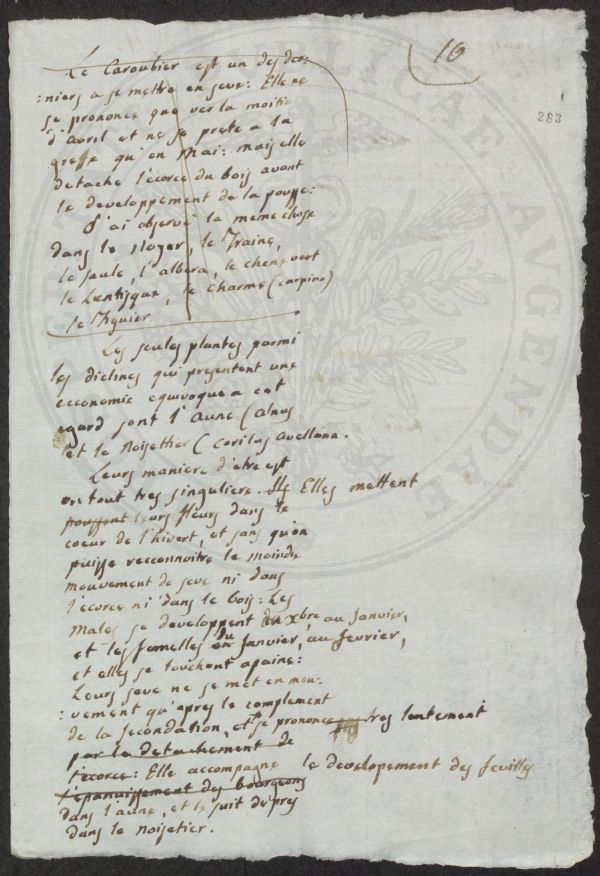 16
283
Le Caroubier est un des der-
:niers a se mettre en seve: Elle ne
se prononce que ver la moitié
d'avril et ne se prete a la
greffe qu'en Mai: mais elle
detache l'ecorce du bois avant
le developpement de la pousse:
J'ai observé la meme chose
dans le Noyer, le Fraine,
le saule, l'albera, le chene vert
le Lentisque, le charme (carpino)
le Figuier
Les seules plantes parmi
les diclines qui presentent une
economie equivoque a cet
egard sont l'aune (alnus
et le Noisettier (Corilus avellana.
Leurs maniere d'etre est
en tout tres singuliere. Ils Elles mettent
poussent leurs fleurs dans le
coeur de l'hivert, et sans qu'on
puisse reconnoitre le moindre
mouvement de seve ni dans
l'ecorce ni dans le bois: Les
Males se developpent en xbre au Janvier,
et les femelles en du Janvier, au fevrier,
et elles se touchent apaine:
Leurs seve ne se met en mou-
:vement qu'apres le complement
de la fecondation, et se prononce tres lentement
par le detachement de
l'ecorce: Elle accompagne le developement des feuilles
l'epanuissement des bourgeons
dans l'aune, et le suit de pres
dans le Noisetier.
PUBLICAE
AUGENDAE